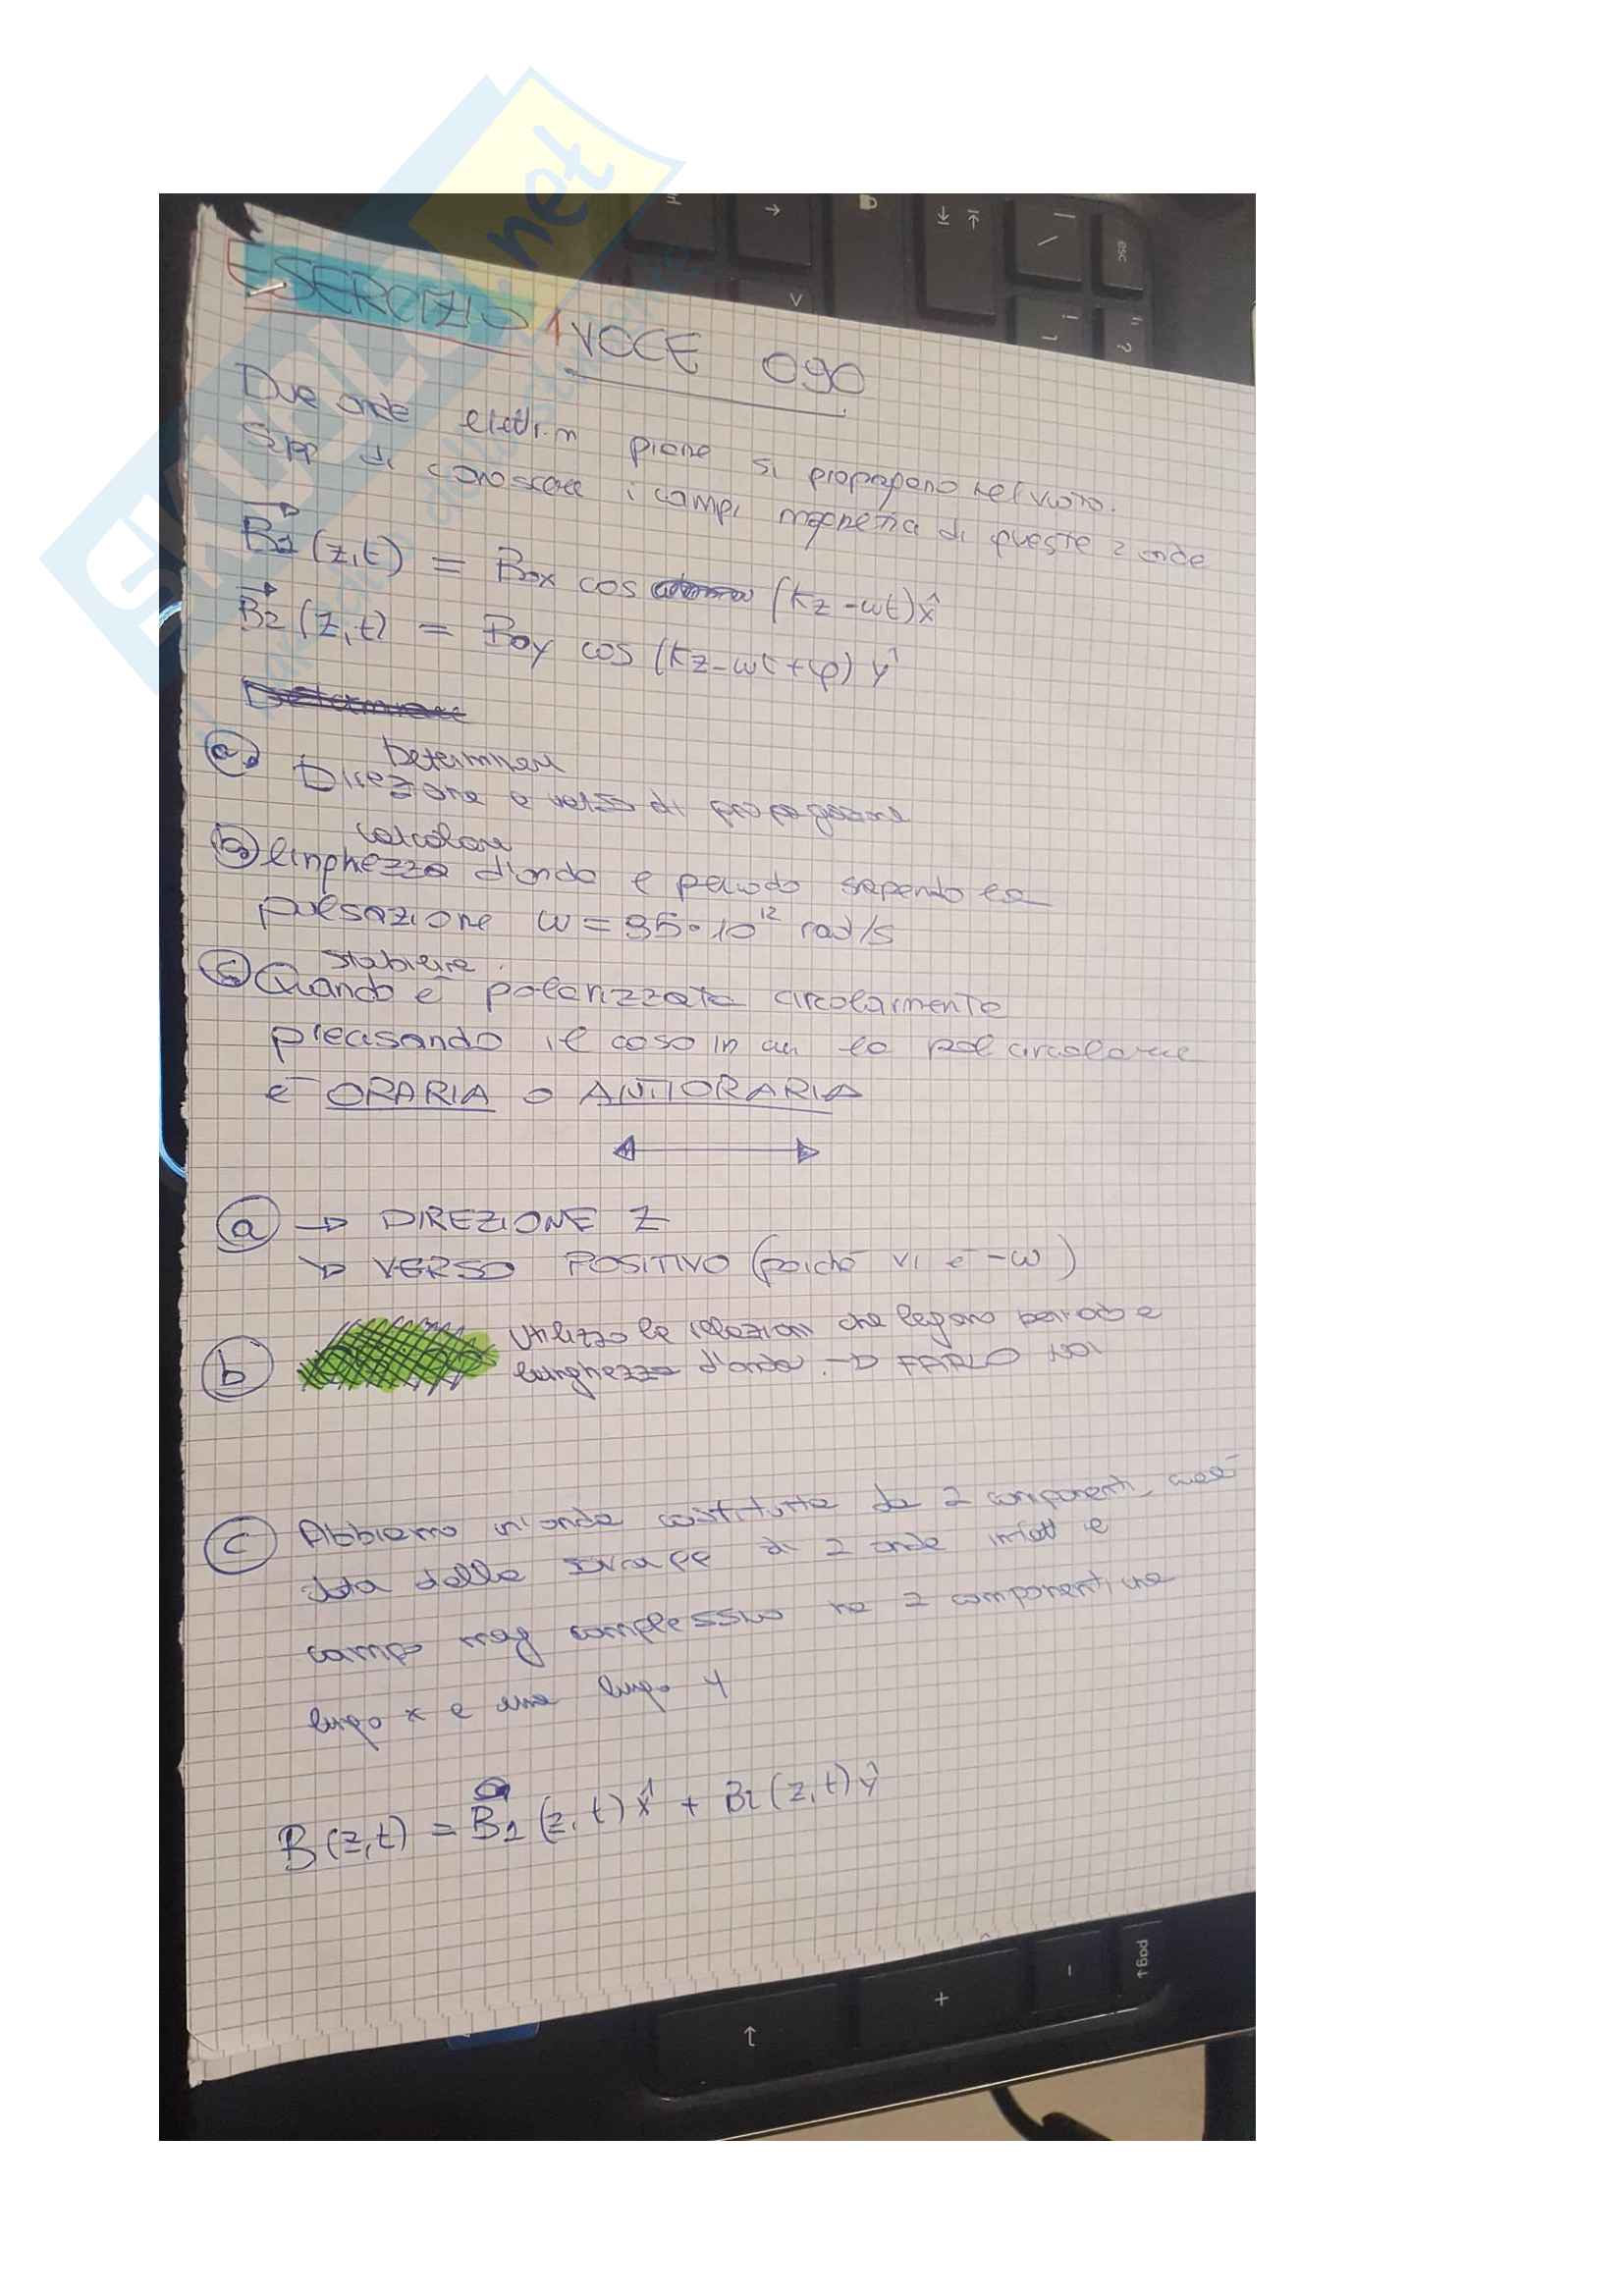 ESERCIZIO 1 VOCE 090
Due onde elettr.m piane si propagano nel vuoto.
Supp di conoscere i campi magnetici di queste 2 onde
B1 (z,t) = Box cos (kz-ωt)x̂
B2 (z,t) = Boy cos (kz-ωt+φ) ŷ
a. Determinare
Direzione e verso di propagazione
b. calcolare
lunghezza d'onda e periodo sapendo la
pulsazione ω = 35·10¹² rad/s
c. stabilire
Quando è polarizzata circolarmente
precisando il caso in cui la pol circolare
è ORARIA o ANTIORARIA
a → DIREZIONE Z
→ VERSO POSITIVO (poiché vi è -ω)
b Utilizzo le relazioni che legano periodo e
lunghezza d'onda. → FARLO NOI
c Abbiamo un'onda costituita da 2 componenti, cioè
data dalla di 2 onde infatti
campo mag complessivo ha 2 componenti, una
lungo x e una lungo y
B(z,t) = B1 (z,t) x̂ + B2 (z,t) ŷ
SKUOLA.net